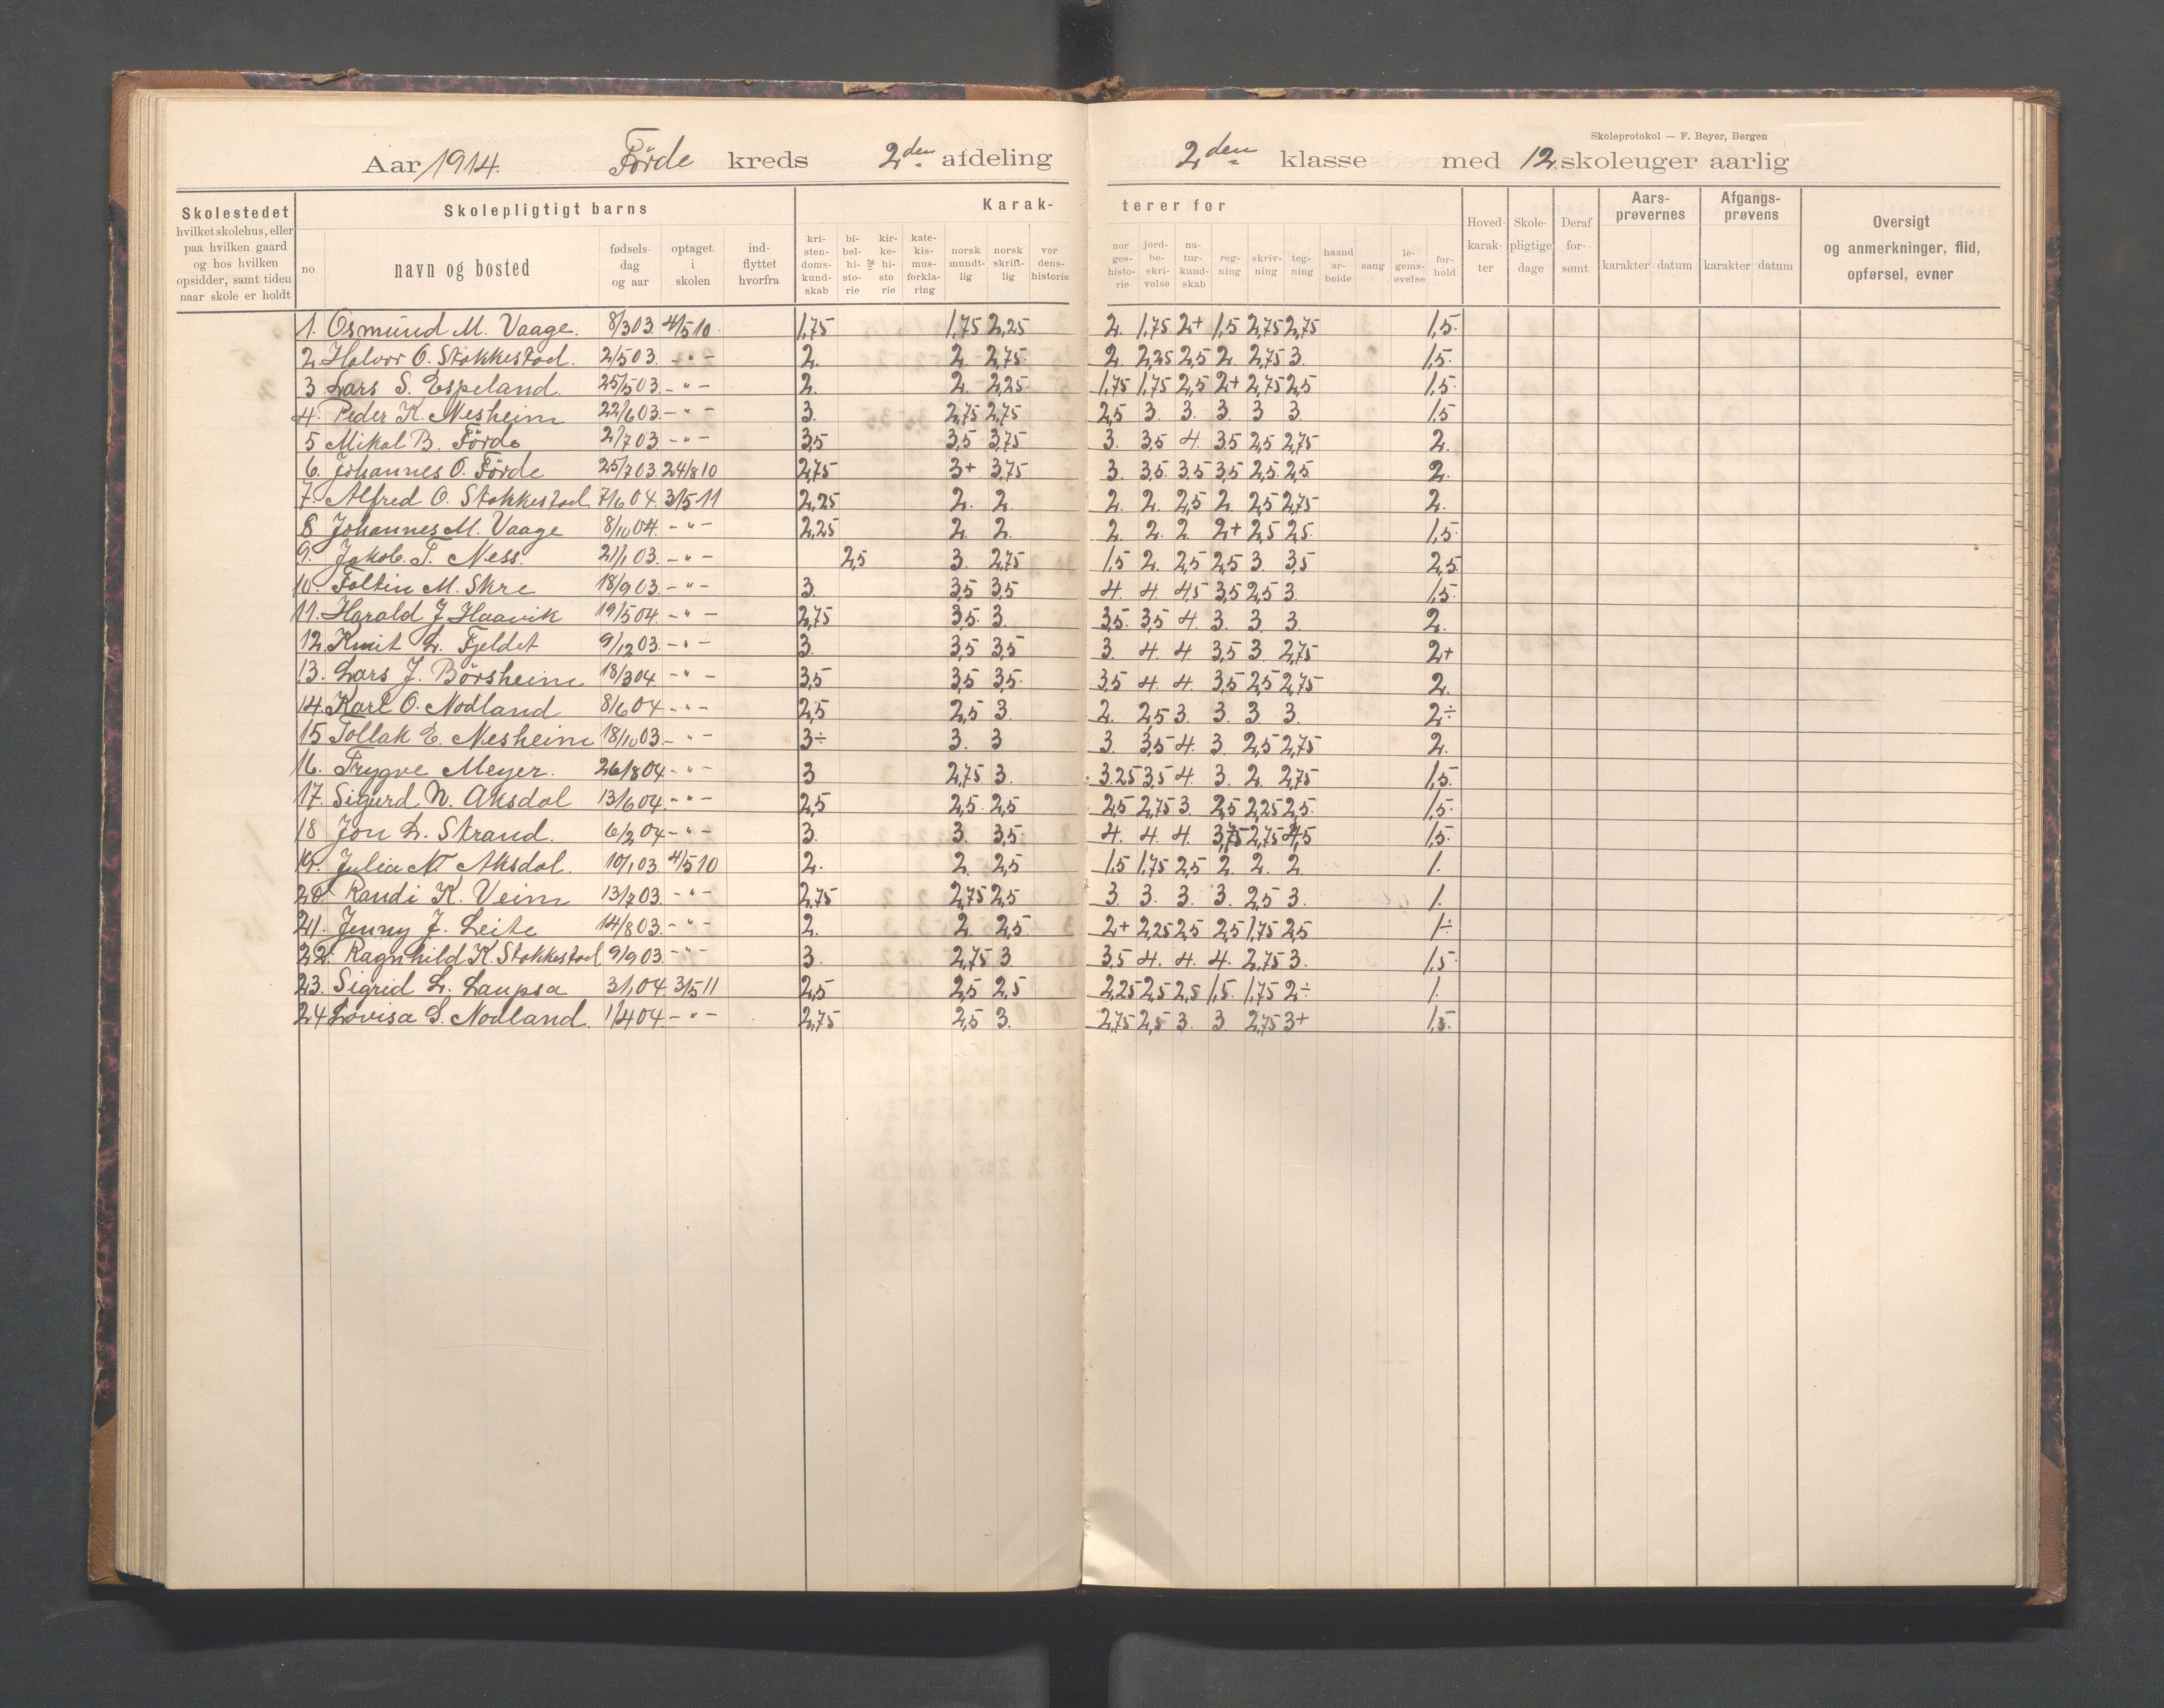 Skoleprotokol — F. Beyer, Bergen
Aar 1914. Förde kreds 2den afdeling 2den klasse med 12 skoleuger aarlig
Skolestedet hvilket skolehus, eller paa hvilken gaard og hos hvilken opsidder, samt tiden naar skole er holdt
Skolepligtigt barns
no. navn og bosted fødselsdag og aar optaget i skolen indflyttet hvorfra
Karakterer for
kristendomskundskab bibelhistorie og kirkehistorie katekismusforklaring norsk mundtlig norsk skriftlig verdenshistorie norgeshistorie jordbeskrivelse naturkundskab regning skrivning tegning haandarbeide sang legemsøvelse forhold
Hovedkarakter Skolepligtige dage Deraf forsømt
Aarsprøvernes karakter datum
Afgangsprøvens karakter datum
Oversigt og anmerkninger, flid, opførsel, evner
1. Osmund M. Vaage. 8/3 03. 4/5 10. 1,75 1,75 2,25 2. 1,75 2+ 1,5 2,75 2,75 1,5.
2. Halvor O. Stokkestad. 2/5 03. -"- 2. 2. 2,75. 2. 2,25 2,5 2. 2,75 3. 1,5.
3 Lars S. Espeland. 25/5 03. -"- 2. 2. 2,25. 1,75 1,75 2,5 2+ 2,75 2,5 1,5.
4. Peder K. Nesheim 22/6 03. -"- 3. 2,75 2,75 2,5 3. 3. 3. 3 3. 1,5
5 Mikal B. Förde 2/7 03 -"- 3,5 3,5 3,75 3. 3,5 4. 3,5 2,5 2,75 2.
6. Johannes O. Förde 25/7 03. 24/8 10 2,75 3+ 3,75 3. 3,5. 3,5 3,5 2,5. 2,5. 2.
7. Alfred O. Stokkestad 7/6 04. 3/5 11 2,25 2. 2. 2. 2. 2,5 2. 2,5 2,75 2.
8 Johannes M. Vaage 8/10 04. -"- 2,25 2. 2. 2. 2. 2. 2+ 2,5 2,5. 1,5.
9. Jakob T. Ness. 21/1 03. -"- 2,5 3. 2,75 1,5 2. 2,5 2,5 3. 3,5 2,5.
10. Foltin M. Skre 18/9 03. -"- 3. 3,5 3,5 4. 4. 4,5 3,5 2,5 3. 1,5.
11. Harald J. Haavik 19/5 04. -"- 2,75 3,5. 3. 3,5. 3,5 4. 3. 3. 3. 2.
12. Knut L. Fjeldet 9/12 03. -"- 3. 3,5 3,5 3. 4. 4 3,5 3. 2,75 2+
13. Lars J. Börsheim 18/3 04 -"- 3,5 3,5 3,5. 3,5 4. 4. 3,5 2,5 2,75 2.
14. Karl O. Nodland 8/6 04 -"- 2,5 2,5 3. 2. 2,5 3. 3. 3 3. 2÷
15 Tollak E. Nesheim 18/10 03. -"- 3÷ 3. 3 3. 3,5 4. 3 2,5 2,75 2.
16. Trygve Meyer. 26/8 04 -"- 3 2,75 3. 3.25 3,5 4. 3. 2. 2,75 1,5.
17. Sigurd N. Aksdal 13/6 04. -"- 2,5 2,5. 2,5 2,5 2,75 3. 2,5 2,25 2,5. 1,5.
18 Jon L. Strand. 6/2 04 -"- 3. 3. 3,5. 4. 4. 4. 3,75 2,75 4,5 1,5.
19. Julia N Aksdal. 10/1 03. 4/5 10 2. 2. 2,5 1,5 1,75 2,5 2. 2. 2. 1.
20. Randi K. Veim 13/7 03. -"- 2,75 2,75 2,5 3. 3. 3. 3. 2,5 3. 1.
21. Jenny J. Leite 14/8 03. -"- 2. 2. 2,5. 2+ 2,25 2,5 2,5 1,75 2,5 1÷
22. Ragnhild K. Stokkestad 9/9 03. -"- 3. 2,75 3 3,5 4. 4. 4. 2,75 3. 1,5
23. Sigrid L. Laupsa 3/1 04. 3/5 11 2,5 2,5 2,5 2,25 2,5 2,5 1,5. 1,75 2÷ 1.
24 Lovisa S. Nodland. 1/4 04. -"- 2,75 2,5 3. 2,75 2,5 3. 3 2,75 3+ 1,5.